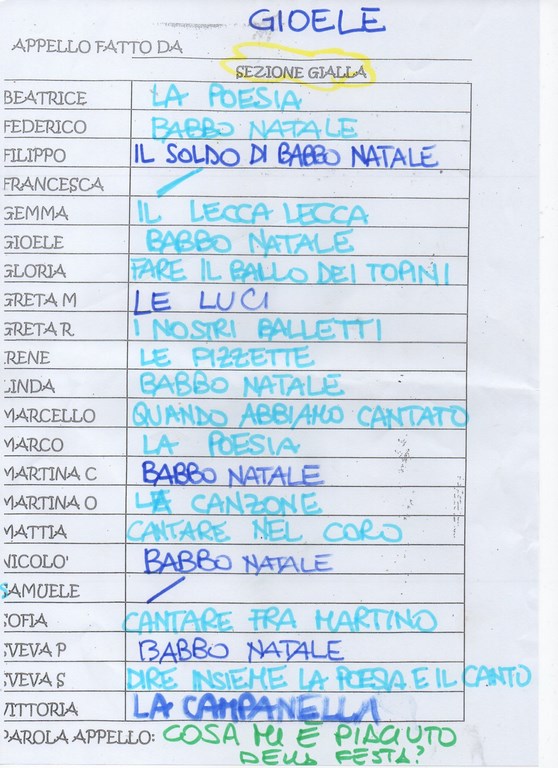 GIOELE
APPELLO FATTO DA
SEZIONE GIALLA
BEATRICE LA POESIA
FEDERICO BABBO NATALE
FILIPPO IL SOLDO DI BABBO NATALE
FRANCESCA
GEMMA IL LECCA LECCA
GIOELE BABBO NATALE
GLORIA FARE IL BALLO DEI TOPINI
GRETA M LE LUCI
GRETA R. I NOSTRI BALLETTI
RENE LE PIZZETTE
LINDA BABBO NATALE
MARCELLO QUANDO ABBIAMO CANTATO
MARCO LA POESIA
MARTINA C BABBO NATALE
MARTINA O LA CANZONE
MATTIA CANTARE NEL CORO
NICOLO' BABBO NATALE
SAMUELE
OFIA CANTARE FRA MARTINO
VEVA P BABBO NATALE
VEVA S DIRE INSIEME LA POESIA E IL CANTO
VITTORIA LA CAMPANELLA
PAROLA APPELLO: COSA MI È PIACIUTO
DELLA FESTA?